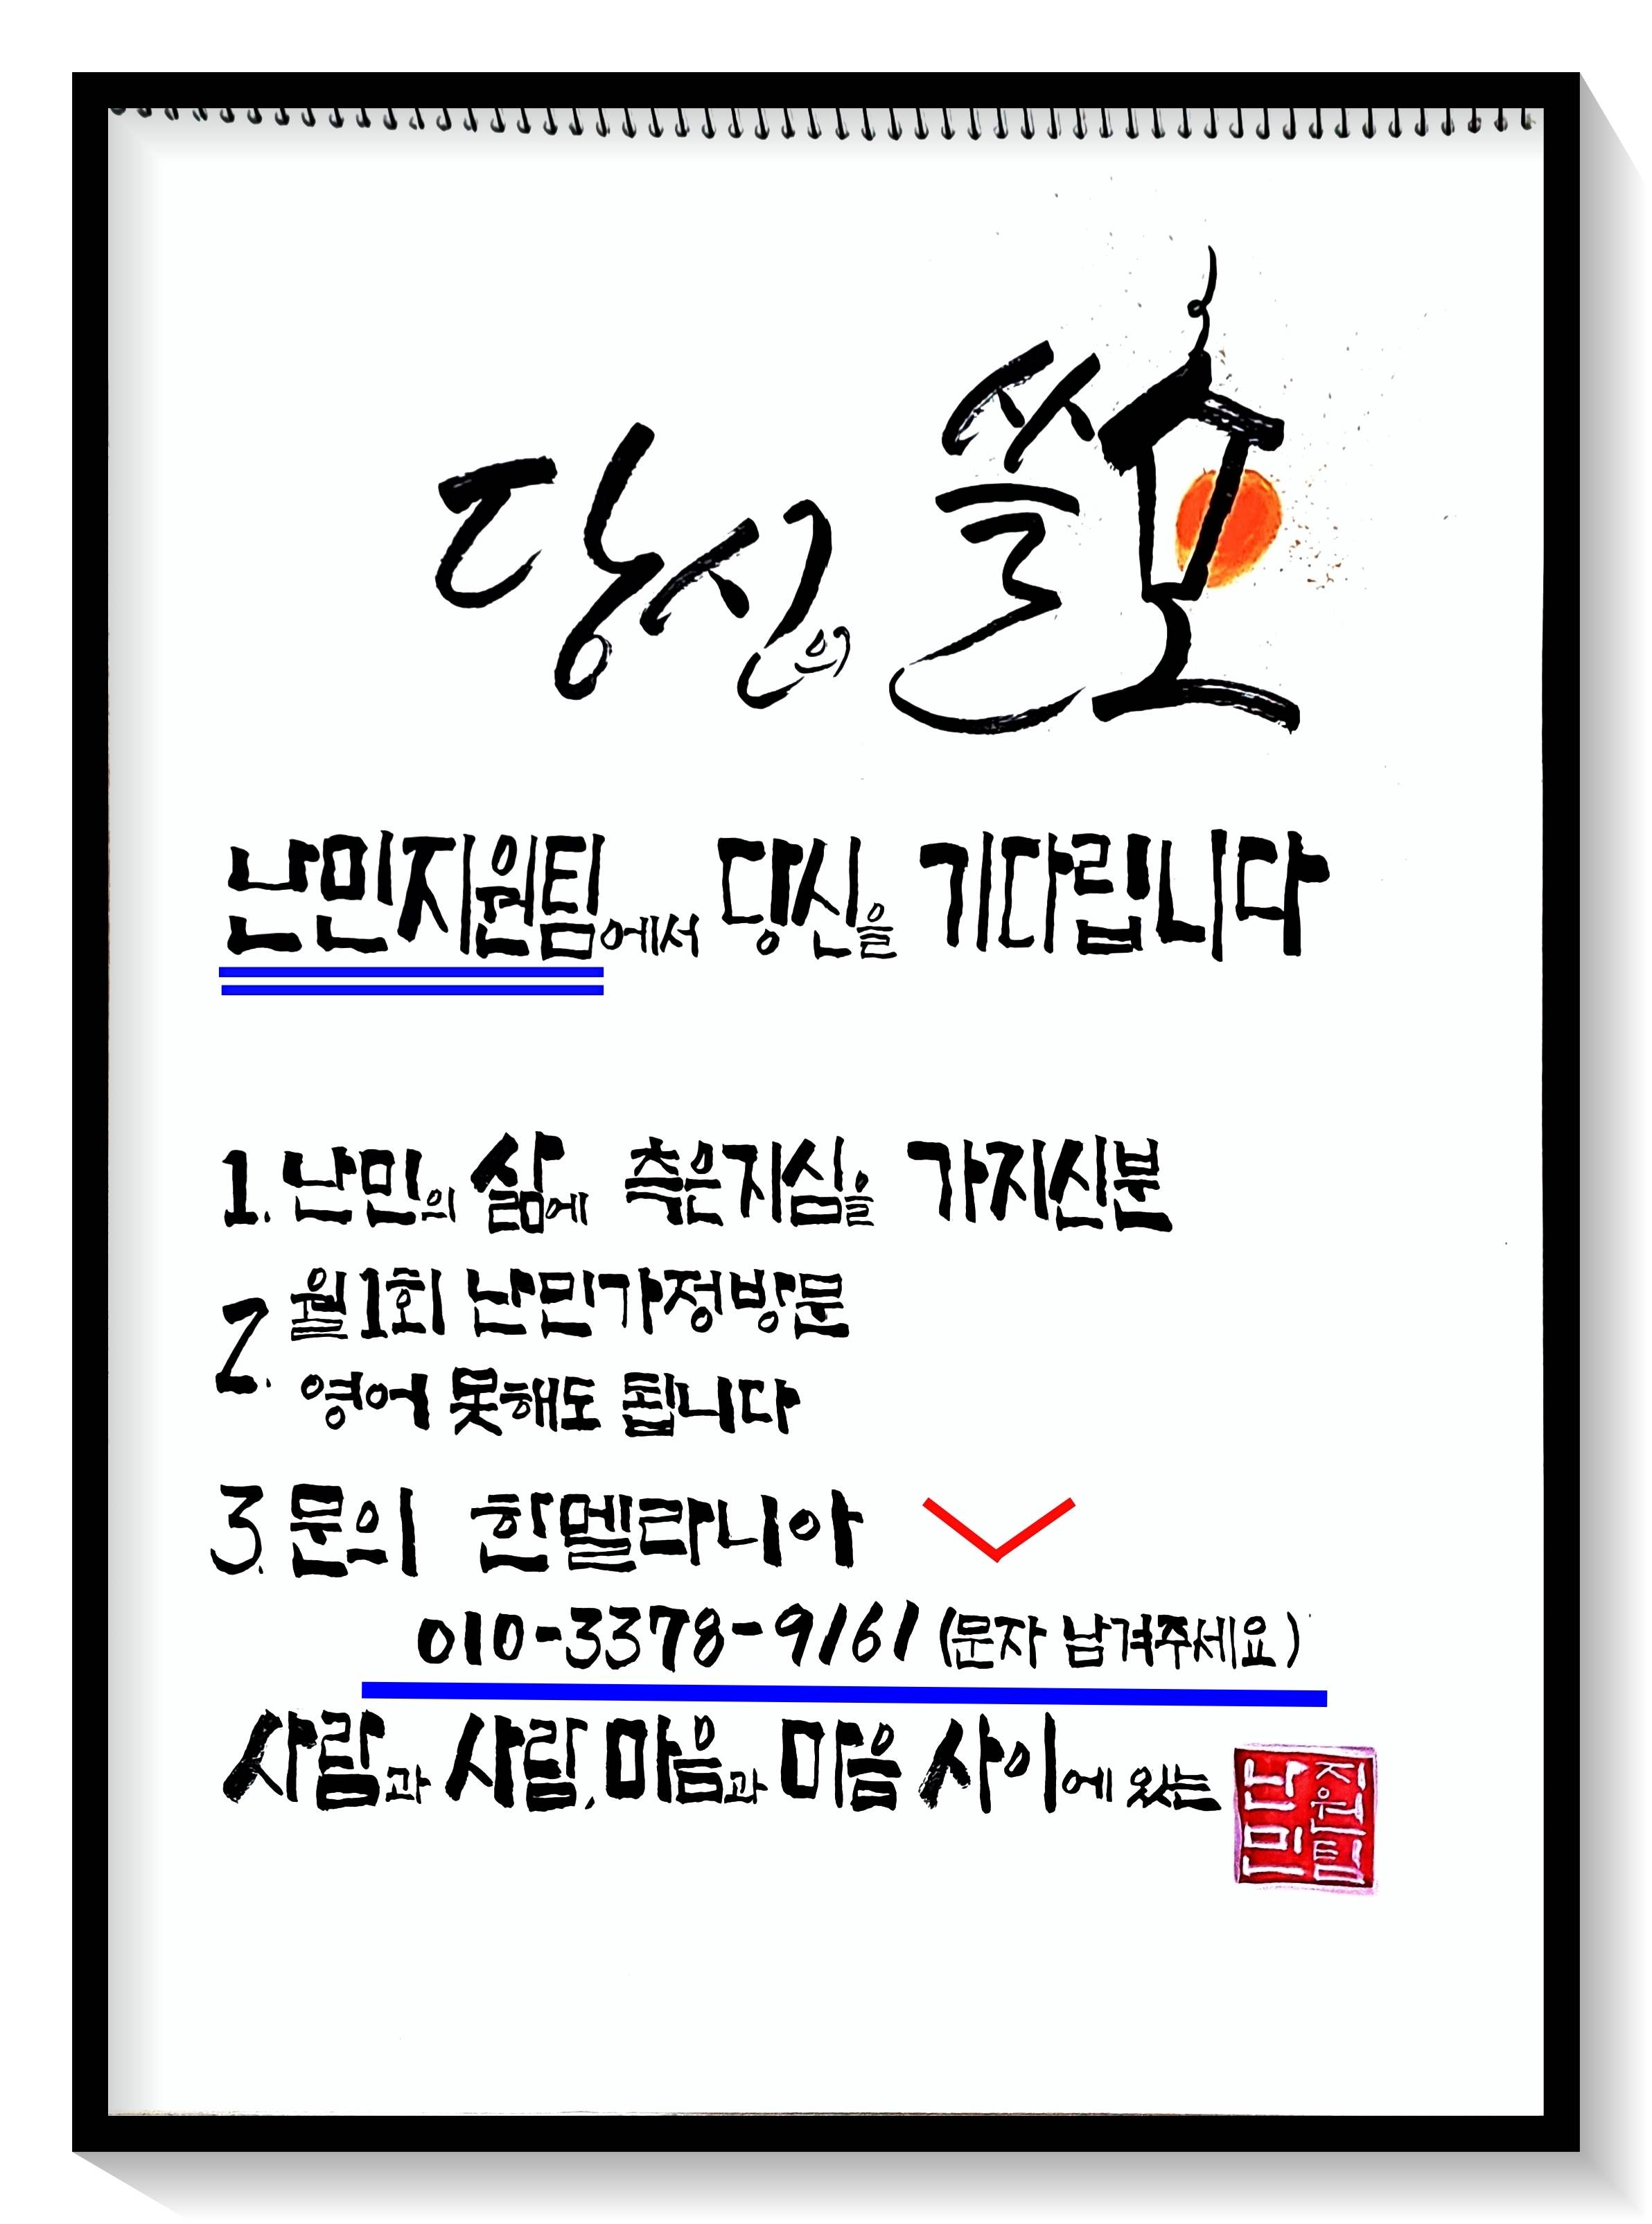 당신의 쓸모
난민지원팀에서 당신을 기다립니다
1. 난민의 삶에 측은지심을 가지신분
2. 월1회 난민가정방문
영어 못해도 됩니다
3. 문의 한멜라니아
010-3378-9161 (문자 남겨주세요)
사람과 사람, 마음과 마음 사이에 있는
난민
지원팀